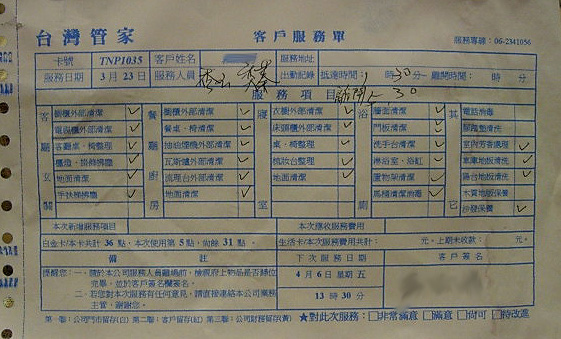 台灣管家 客戶服務單 服務專線：06-2341056
卡號 TNP1035 客戶姓名 服務地址
服務日期 3 月 23 日 服務人員 出勤記錄 抵達時間： 時 30 分 離開時間： 時 分
服務項目
客廳玄關 餐廳廚房 寢室 浴廁 其它
櫥櫃外部清潔 ✓ 櫥櫃外部清潔 ✓ 衣櫥外部清潔 ✓ 牆面清潔 ✓ 電話消毒
電視櫃外部清潔 ✓ 餐桌、椅清潔 ✓ 床頭櫃外部清潔 ✓ 門板清潔 ✓ 腳踏墊清洗
客廳桌、椅整理 ✓ 抽油煙機外部清潔 ✓ 桌、椅整理 ✓ 洗手台清潔 ✓ 室內芳香處理 ✓
櫃燈、掛飾拂塵 ✓ 瓦斯爐外部清潔 ✓ 梳妝台整理 ✓ 淋浴室、浴缸 ✓ 車庫地板清洗 ✓
地面清潔 ✓ 流理台外部清潔 ✓ 地面清潔 ✓ 置物架清潔 ✓ 陽台地板清洗 ✓
手扶梯拂塵 ✓ 地面清潔 ✓ 馬桶清潔消毒 ✓ 木質地板保養
沙發保養 ✓
本次新增服務項目 本次應收服務費用
白金卡/本卡共計 36 點，本次使用第 5 點，尚餘 31 點。 生活卡/本次服務費用共計： 元。上期未收款： 元。
備註 下次服務日期 客戶簽名
提醒您：一、關於本公司服務人員離場前，檢視府上物品是否歸位
完畢，並於客戶簽名欄簽名。
二、若您對本次服務有任何意見，請直接連絡本公司業務
主管，謝謝您。
4 月 6 日 星期 五
13 時 30 分
第一聯：公司門市留存(白) 第二聯：客戶留存(紅) 第三聯：公司財務留存(黃) ★對此次服務：□非常滿意 □滿意 □尚可 □待改進